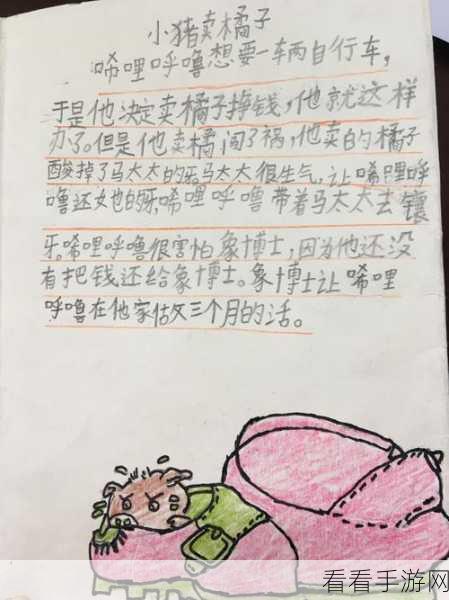 小猪卖橘子
唏哩呼噜想要一车两自行车，
于是他决定卖橘子挣钱，他就这样
办了。但是他卖橘闯了祸，他卖的橘子
酸掉了马太太的牙。马太太很生气，让唏哩呼
噜还她的牙。唏哩呼噜带着马太太去镶
牙。唏哩呼噜很害怕象博士，因为他还没
有把钱还给象博士。象博士让唏哩
呼噜在他家做三个月的活。
看看手游网